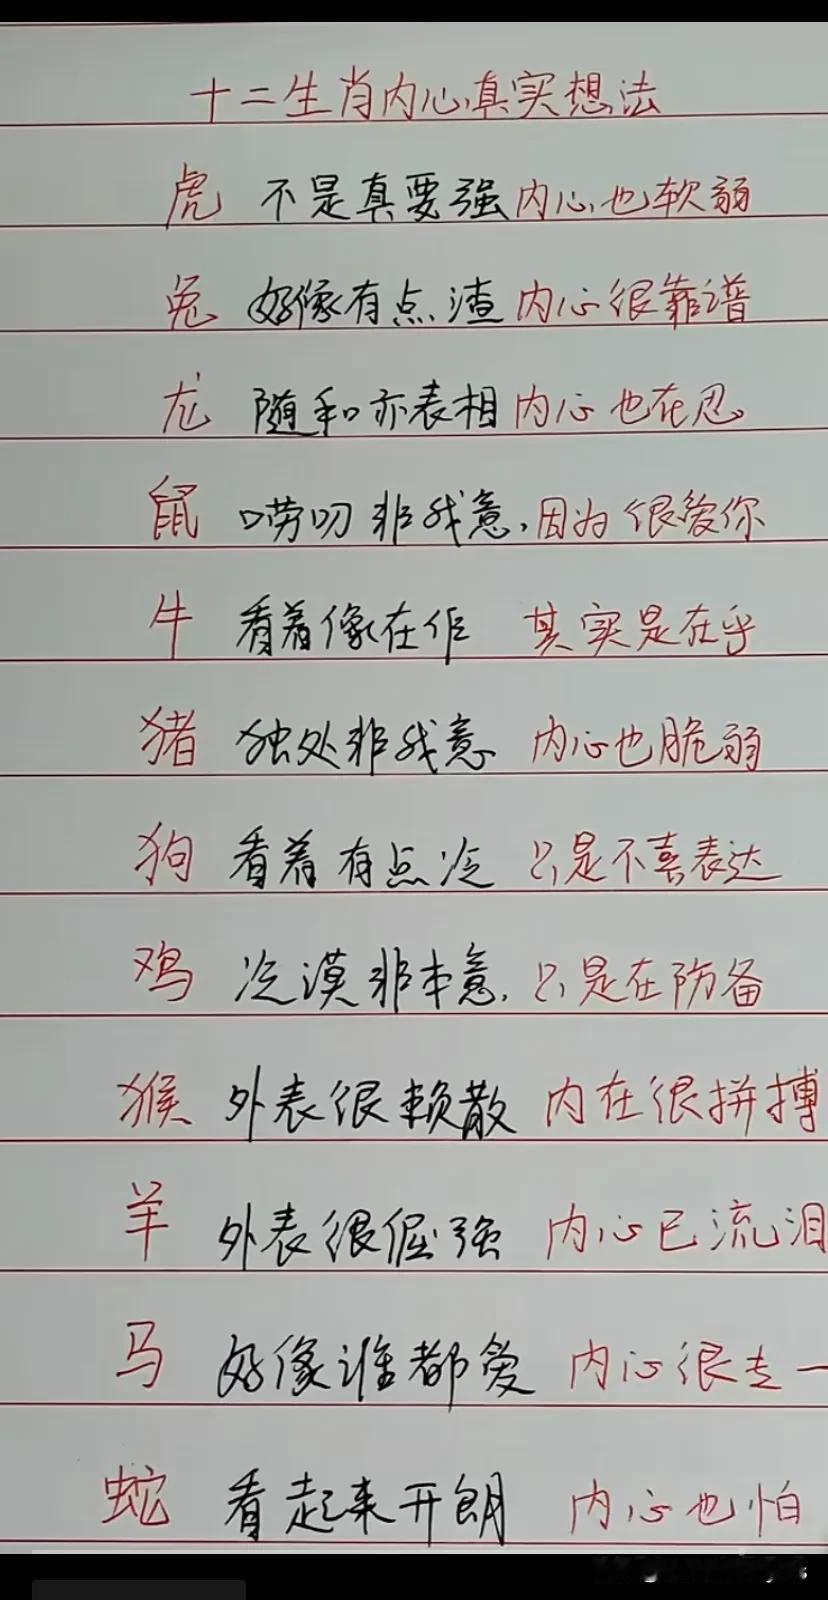 十二生肖内心真实想法
虎 不是真要强 内心也软弱
兔 好像有点渣 内心很靠谱
龙 随和亦表相 内心也在忍
鼠 唠叨非我意,因为很爱你
牛 看着像在作 其实是在乎
猪 独处非我意 内心也脆弱
狗 看着有点冷 只是不喜表达
鸡 冷漠非本意,只是在防备
猴 外表很赖散 内在很拼搏
羊 外表很倔强 内心已流泪
马 好像谁都爱 内心很专一
蛇 看起来开朗 内心也怕